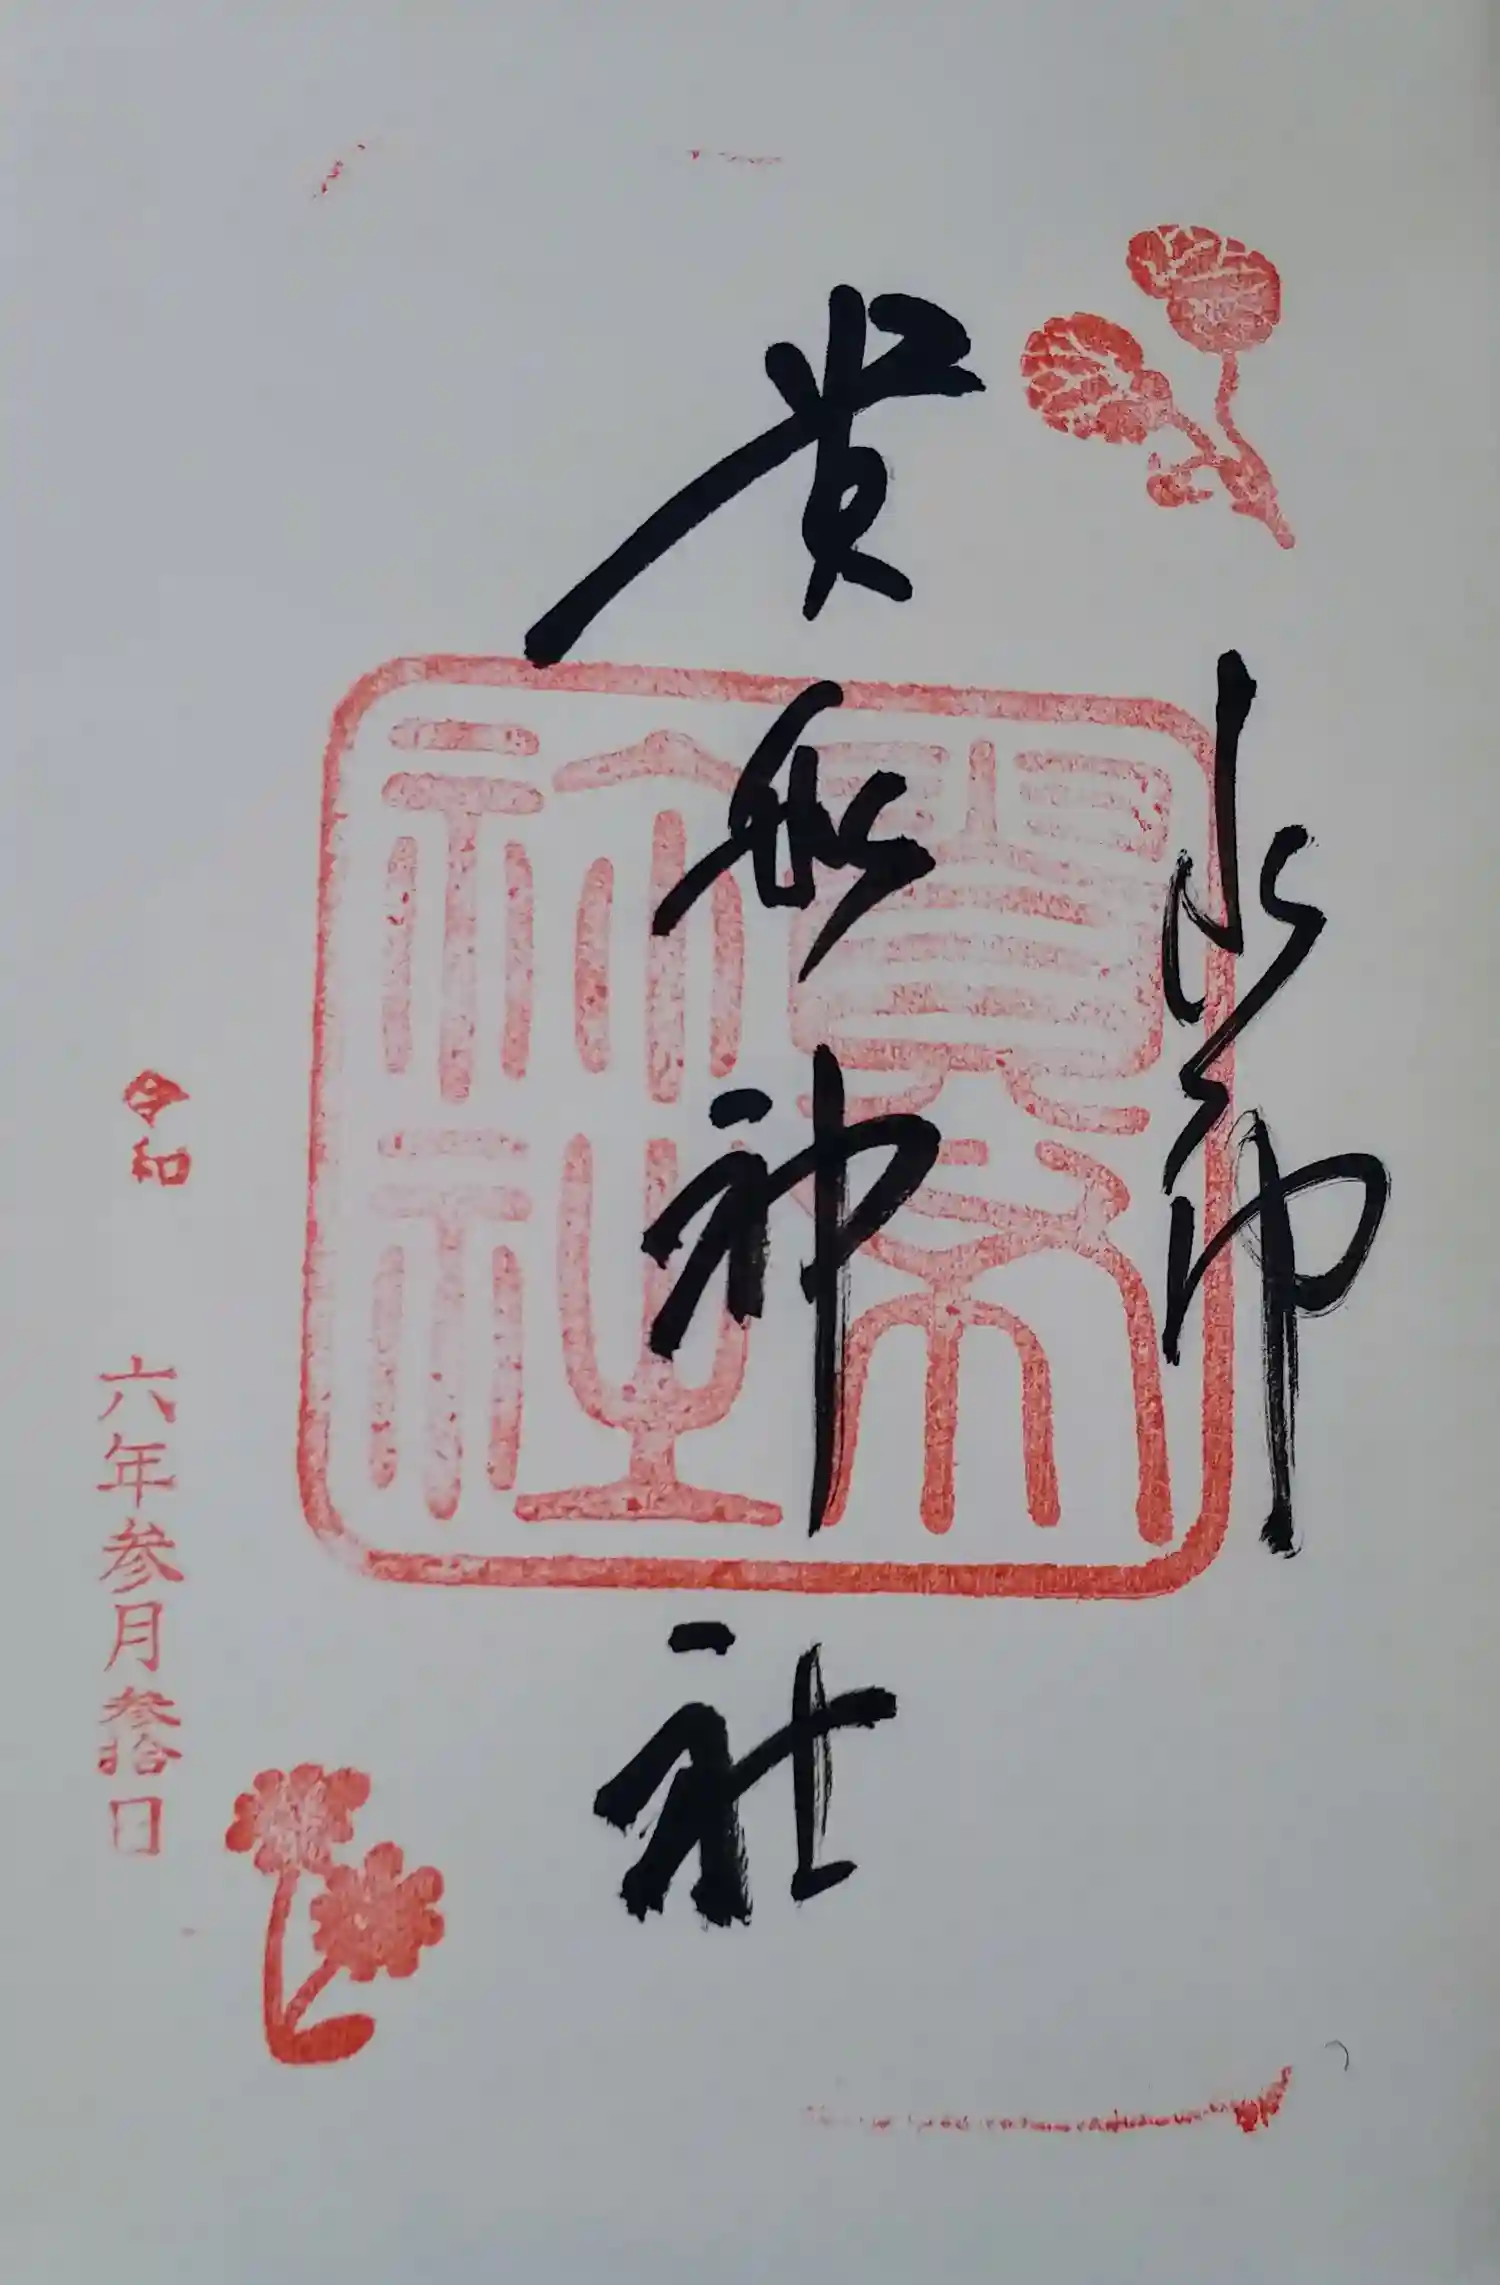 水神
貴船神社
貴布祢社
令和六年参月參拾日